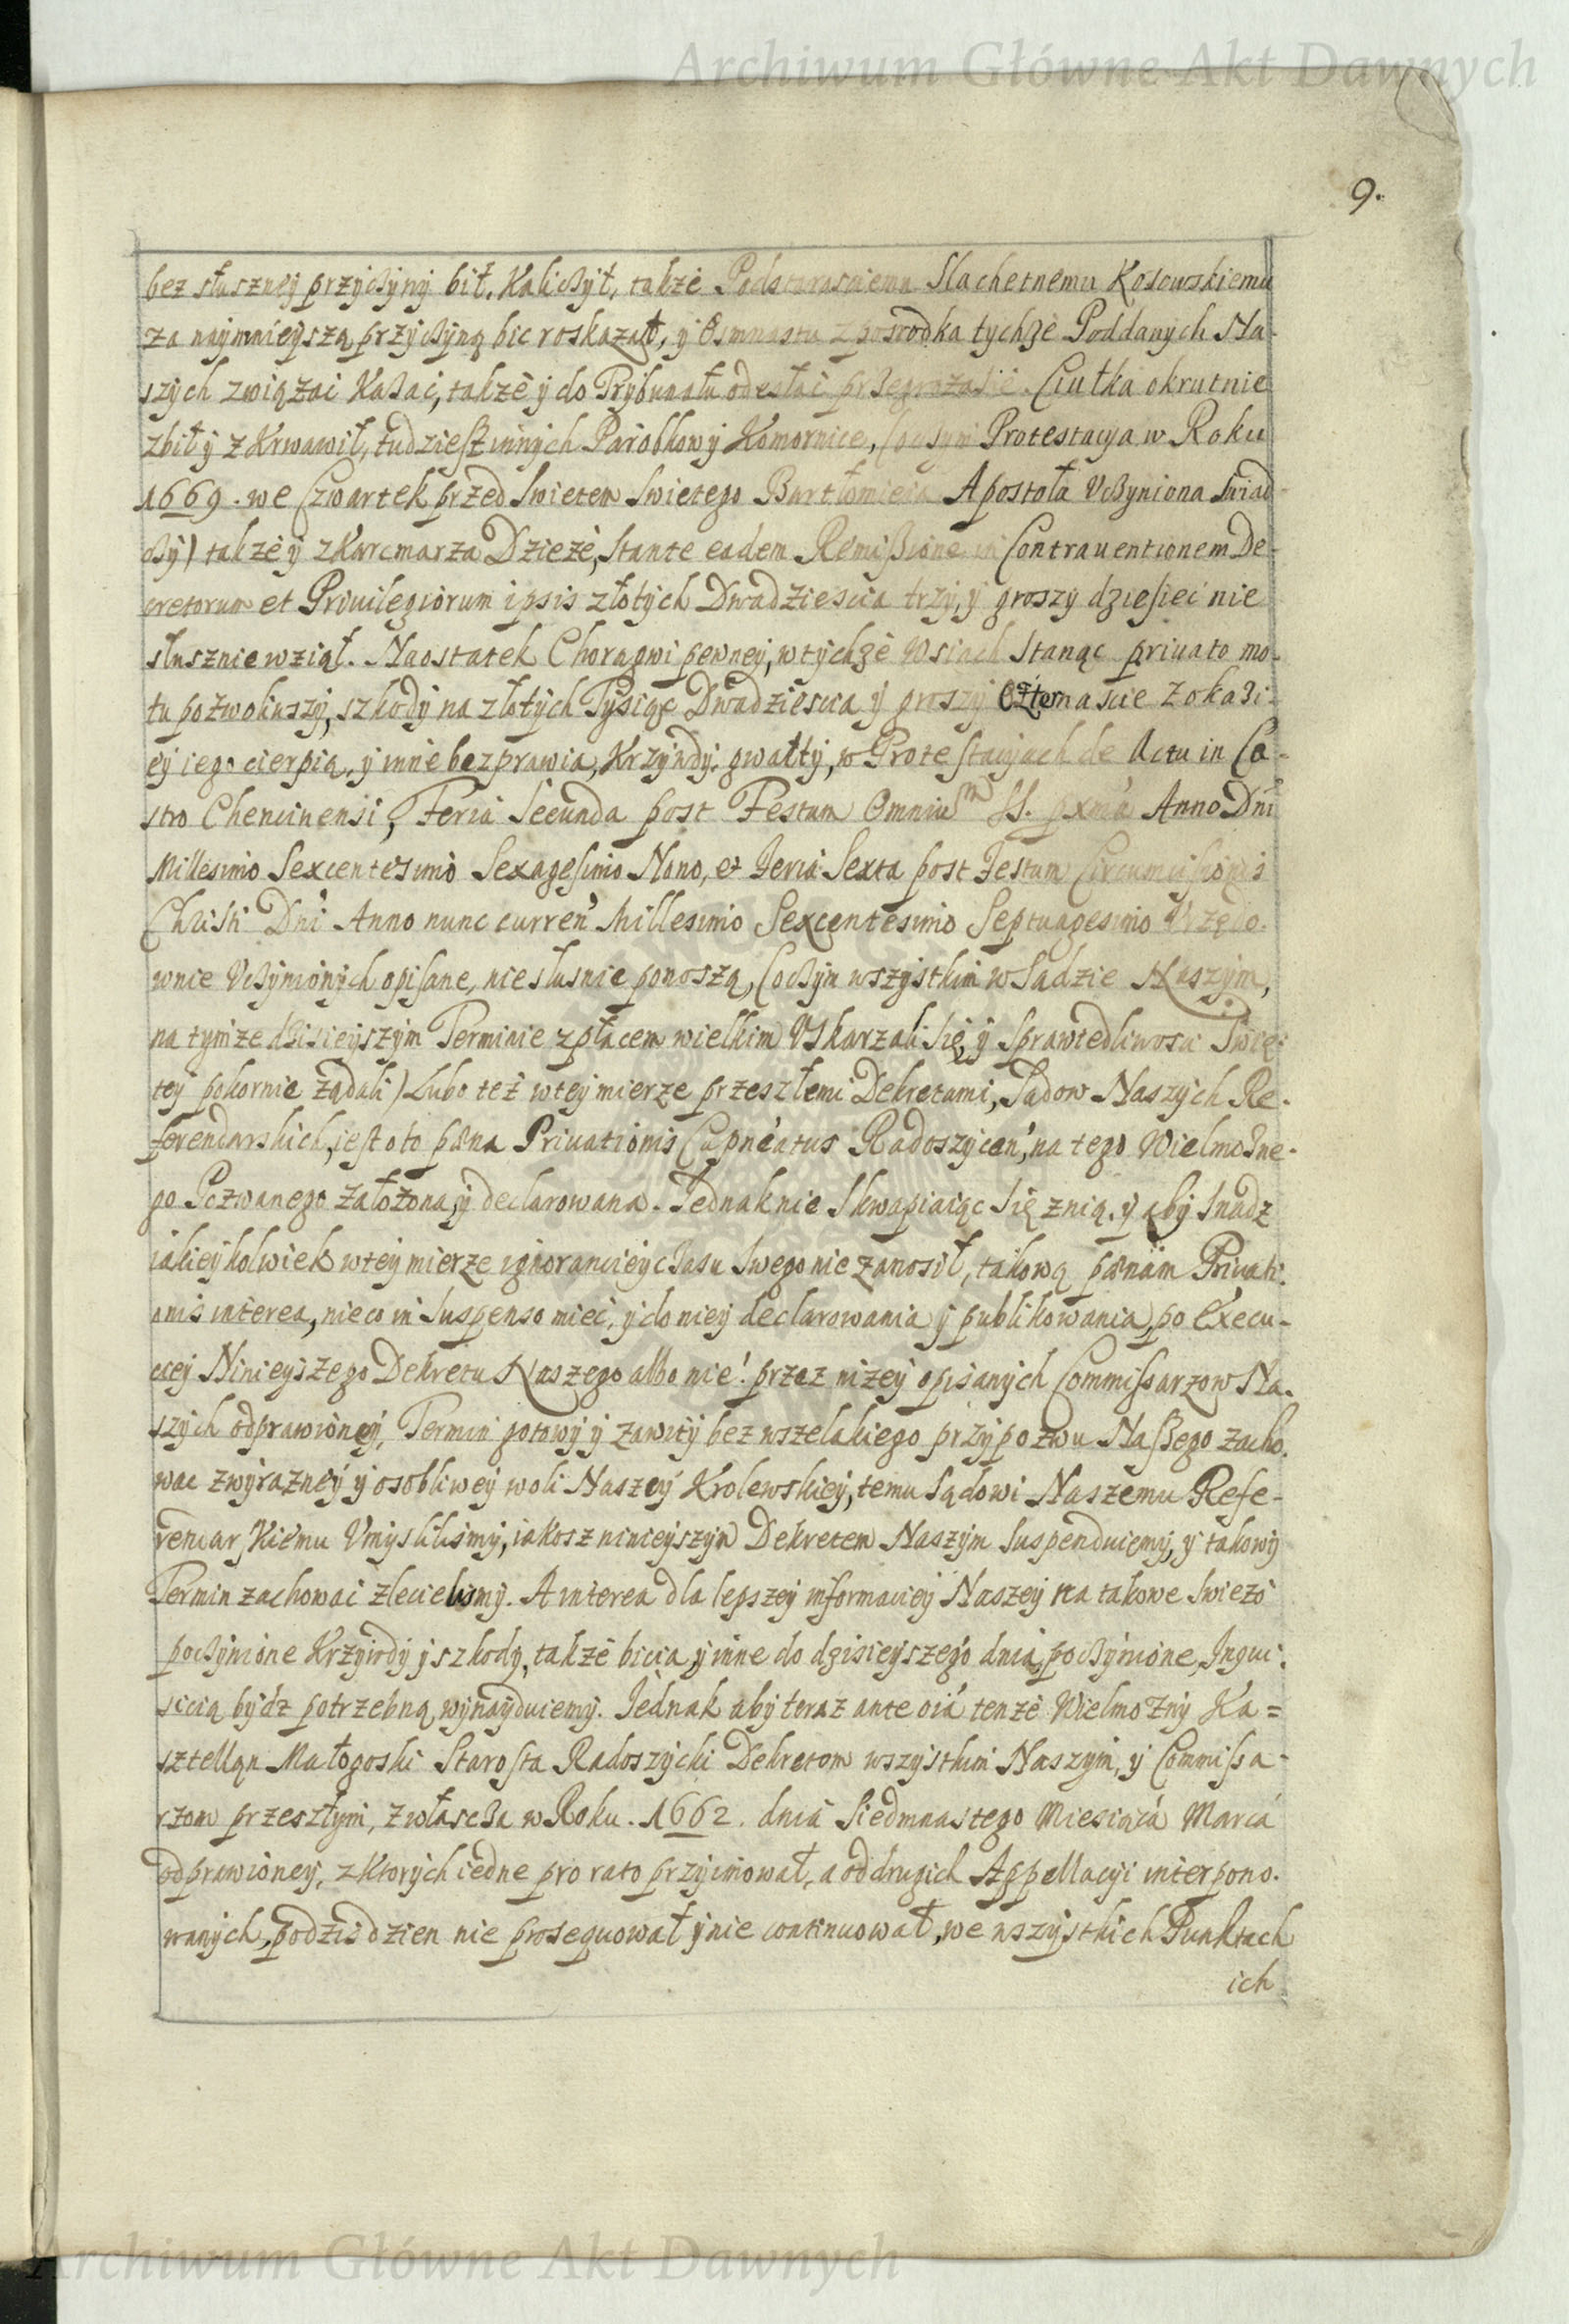 Archiwum Główne Akt Dawnych
9.
bez słuszney przyczyny bił, kaliczył, także Podstarosciemu Slachetnemu Kosowskiemu
za naymnieyszą przyczyną bic roskazał, y Osmnastu z posrodka tychże Poddanych Na-
szych związać kazać, także y do Trybunału odesłać przegrażasie. Ciułka okrutnie
zbił y zkrwawił, tudziesz innych Parobkow y Komornice, (oczym Protestacya w Roku
1669. we Czwartek przed Swietem Swietego Bartłomieia Apostoła Vczyniona swiad-
czy) także y z Karcmarza Dzieże, stante eadem Remissione in Contrauentionem De-
cretorum et Priuilegiorum ipsis złotych Dwadziescia trzy, y groszy dziesieć nie
słusznie wziął. Naostatek Chorągwi pewney, wtychże Wsiach stanąc priuato mo-
tu pozwoliwszy, szkody na złotych Tysiąc Dwadziescia y groszy Czternascie z okazi-
ey iego cierpią, y inne bezprawia, Krzywdy, gwałty, w Protestacyach de Actu in Ca-
stro Chencinensi, Feria Secunda post Festum Omnium SS. pxma Anno Dni
Millesimo Sexcentesimo Sexagesimo Nono, et Feria Sexta post Festum Circumcisionis
Christi Dni Anno nunc curren' Millesimo Sexcentesimo Septuagesimo Vrzędo-
wnie Vczynionych opisane, niesłusnie ponoszą, (oczym wszystkim w Sadzie Naszym,
na tymże dzisieyszym Terminie z płacem wielkim Vskarzali się, y Sprawiedliwosci Swię-
tey pokornie żądali) Lubo też wtey mierze przeszłemi Dekretami, Sadow Naszych Re-
ferendarskich, iest oto pæna Priuationis Capneatus Radoszycen', na tego Wielmożne-
go Pozwanego założona, y declarowana. Jednak nie skwapiaiąc się z nią, y aby snadz
iakieykolwiek wtey mierze ignorancieyczasu swego nie zanosił, takową pænam Priuati-
onis interea, nieco in suspenso mieć, y do niey declarowania y publikowania, po Execu-
ciey Ninieyszego Dekretu Naszego albo nie! przez niżey opisanych Commissarzow Na-
szych odprawioney, Termin gotowy y zawity bez wszelakiego przypozwu Naszego zacho-
wac zwyrazney y osobliwey woli Naszey Krolewskiey, temu Sądowi Naszemu Refe-
rendarskiemu Vmyslilismy, iakosz ninieyszym Dekretem Naszym suspenduiemy, y takowy
Termin zachować zlecielismy. A interea dla lepszey informaciey Naszey na takowe swiezo
poczynione Krzywdy y szkody, także bicia, y inne do dzisieyszego dnia, poczynione, Inqui-
sicią bydz potrzebną wynayduiemy. Jednak aby teraz ante oiā tenże Wielmożny Ka=
sztellan Małogoski Starosta Radoszycki Dekretom wszystkim Naszym, y Commissa-
rzom przeszłym, zwłascza w Roku. 1662. dnia Siedmnastego Miesiąca Marca
odprawioney, z ktorych iedne pro rato przyimował, a od drugich Appellacyi interpono-
wanych, podzisdzien nie prosequował y nie continuował, we wszystkich Punktach
ich
Archiwum Główne Akt Dawnych